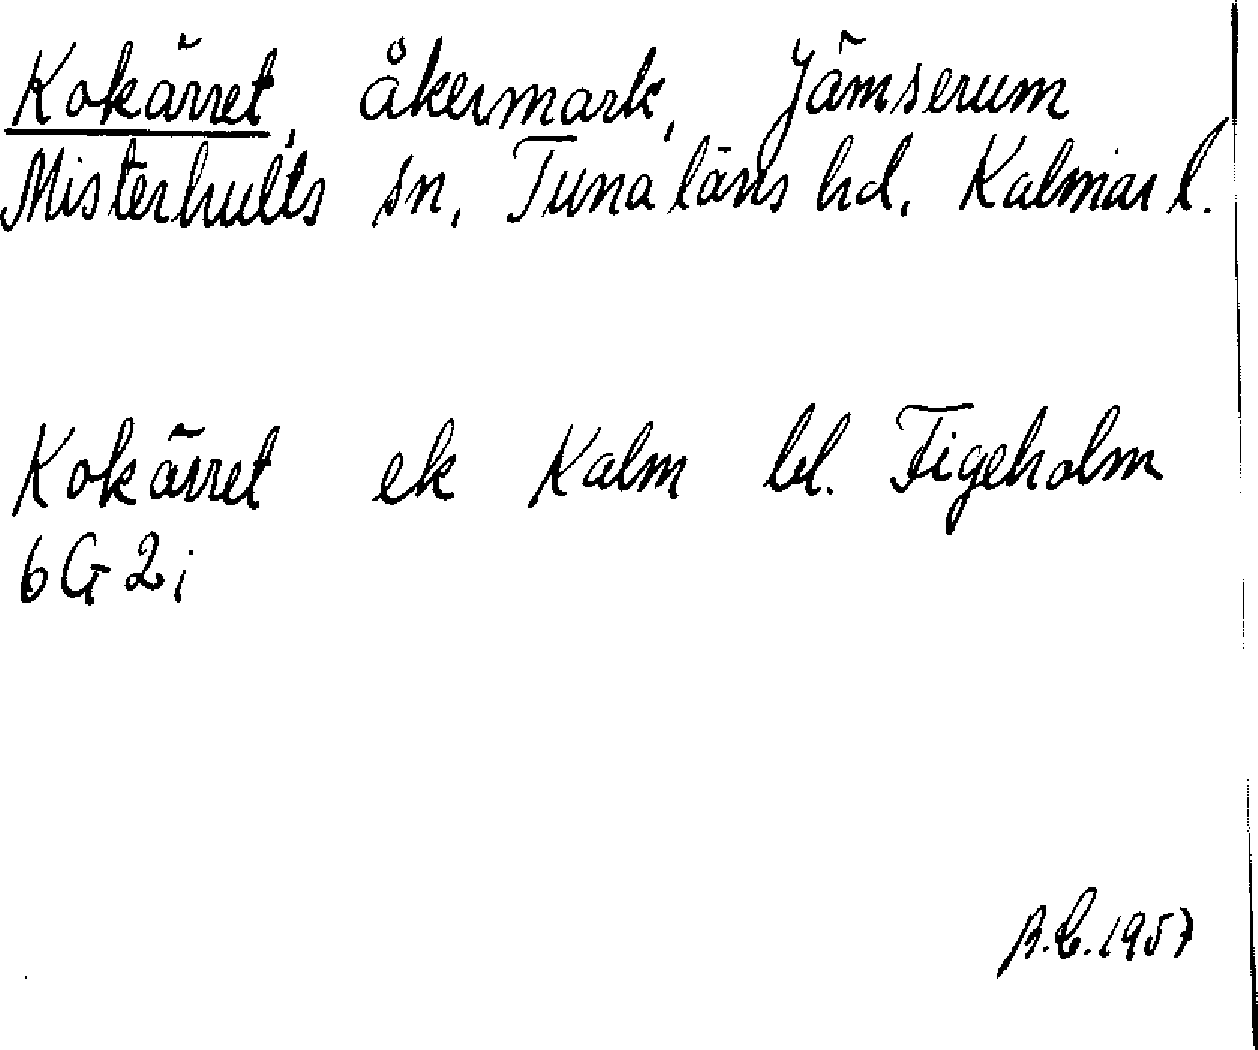 Kokärret, åkermark, Jämserum,
Misterhults sn, Tunaläns hd, Kalmar l.
Kokärret ek Kalm bl. Figeholm
6 G 2 i
B.C. 1957